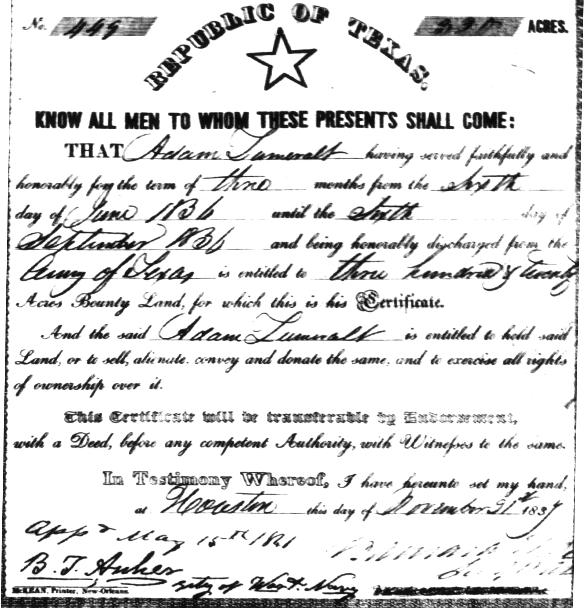 No. 449 320 ACRES.
REPUBLIC OF TEXAS.
KNOW ALL MEN TO WHOM THESE PRESENTS SHALL COME:
THAT Adam Zumwalt having served faithfully and
honorably for the term of three months from the sixth
day of June 1836 until the sixth day of
September 1836 and being honorably discharged from the
Army of Texas is entitled to three hundred & twenty
Acres Bounty Land, for which this is his Certificate.
And the said Adam Zumwalt is entitled to hold said
Land, or to sell, alienate, convey and donate the same, and to exercise all rights
of ownership over it.
This Certificate will be transferable by Endorsement,
with a Deed, before any competent Authority, with Witnesses to the same.
In Testimony Whereof, I have hereunto set my hand,
at Houston this day of November 21st 1837
App'd May 15th 1841
B. T. Archer
McKEAN, Printer, New-Orleans. Sety of War & Navy